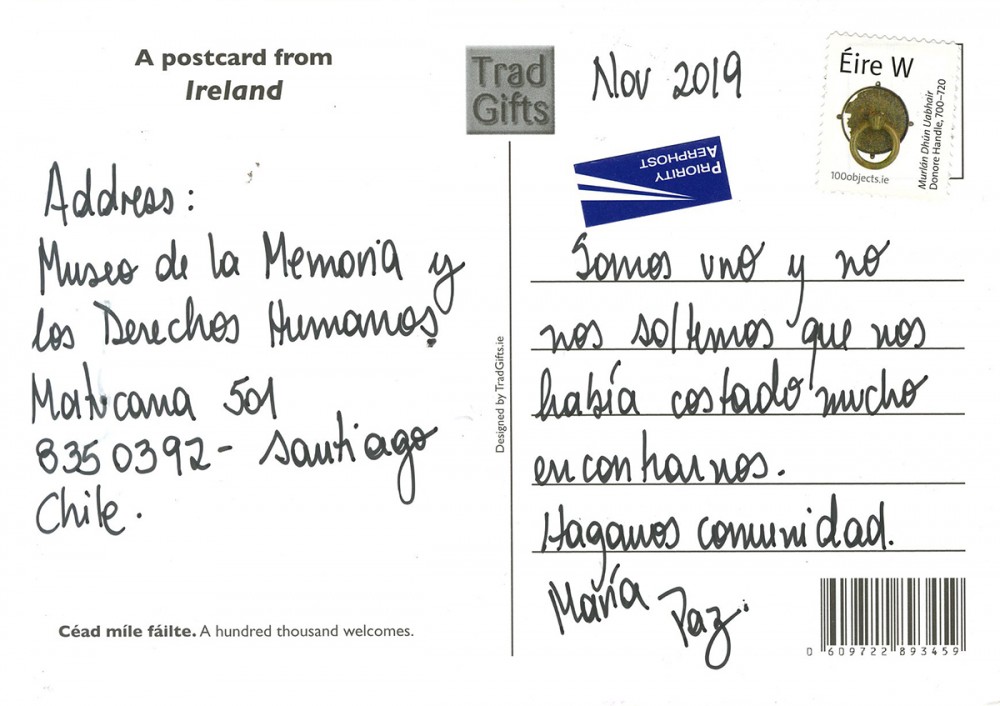 A postcard from
Ireland
Trad
Gifts
Nov 2019
Éire W
Murlán Dhún Uabhair
Donore Handle, 700–720
100objects.ie
PRIORITY
AERPHOST
Address:
Museo de la Memoria y
los Derechos Humanos.
Matucana 501
8350392- Santiago
Chile.
Designed by TradGifts.ie
Somos uno y no
nos soltemos que nos
había costado mucho
encontrarnos.
Hagamos comunidad.
María Paz.
Céad míle fáilte. A hundred thousand welcomes.
0 609722 893459